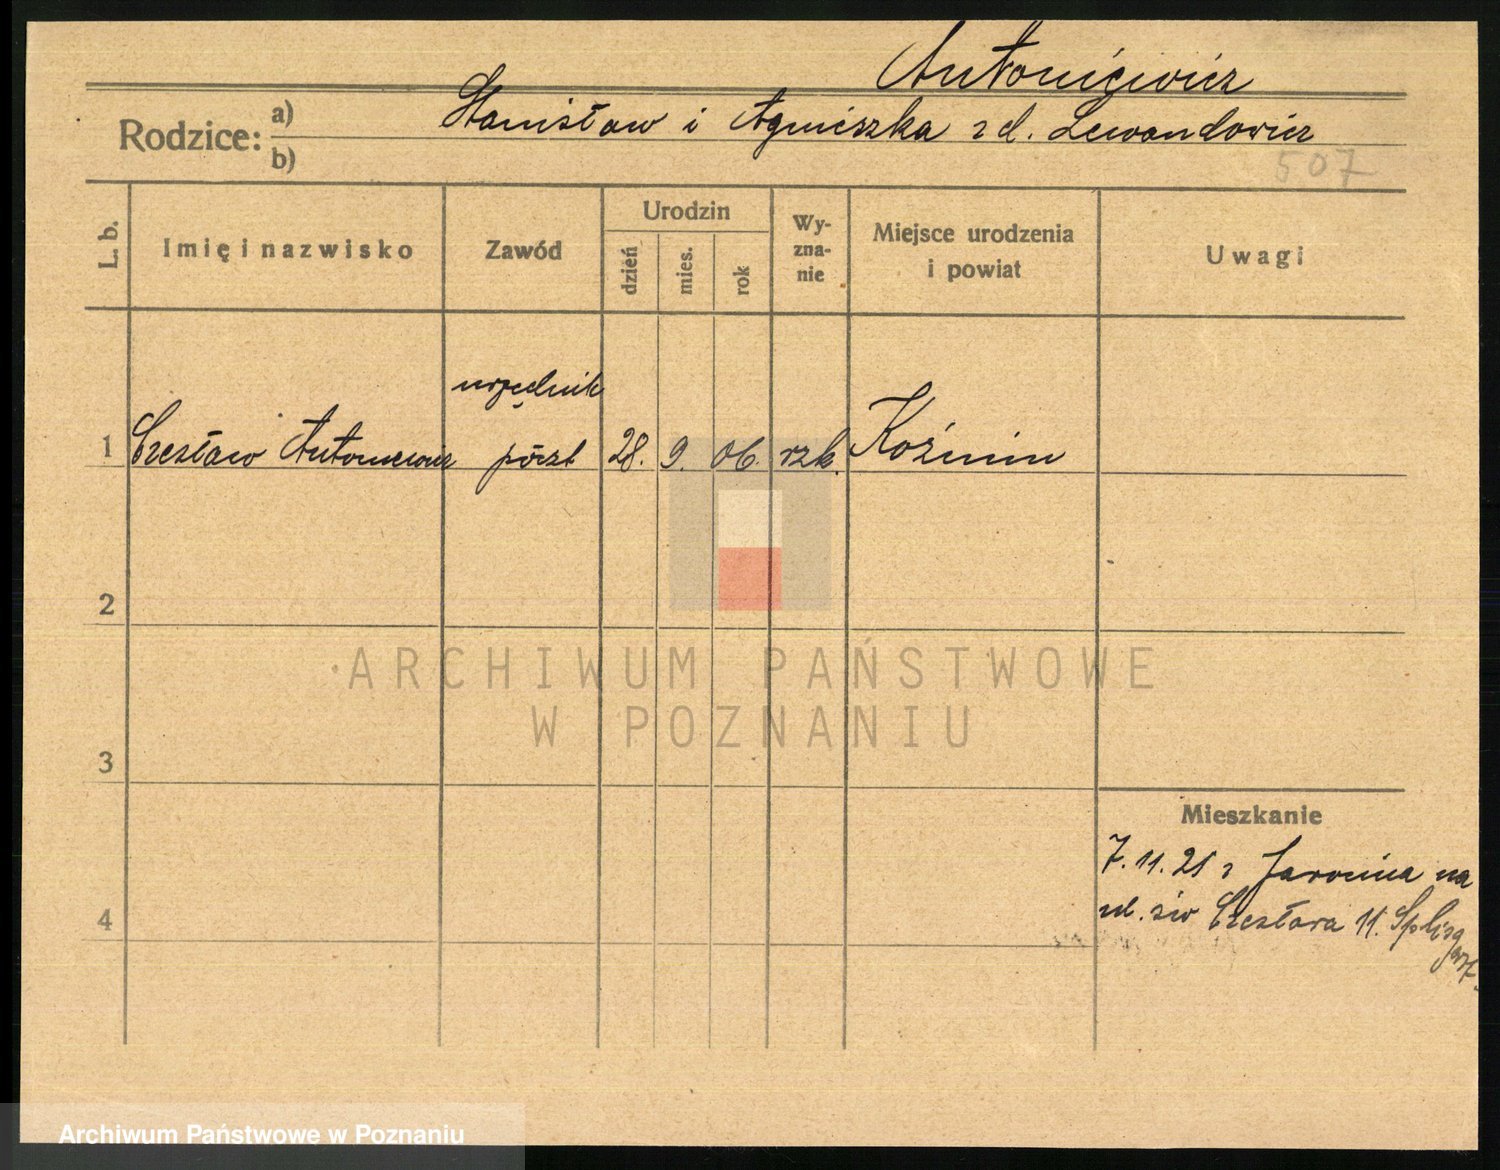 Antoniewicz
Rodzice: a) Stanisław i Agnieszka z d. Lewandowicz
b)
507
L. b. Imię i nazwisko Zawód Urodzin dzień mies. rok Wyznanie Miejsce urodzenia i powiat Uwagi
urzędnik
1 Czesław Antoniewicz poczt 28. 9. 06. rzk. Koźmin
2
ARCHIWUM PAŃSTWOWE
W POZNANIU
3
Mieszkanie
7. 11. 21 z Jarocina na
ul. św Czesława 11.
4
Archiwum Państwowe w Poznaniu